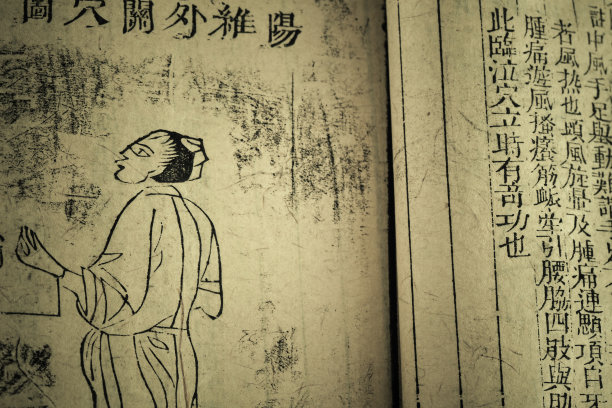 陽維外關穴圖
中風手足與動難調
者風热也頭風旋暈及腫痛連顋項
腫痛遊風搔癢筋牽引腰脇四肢與
此臨泣穴立時有奇功也